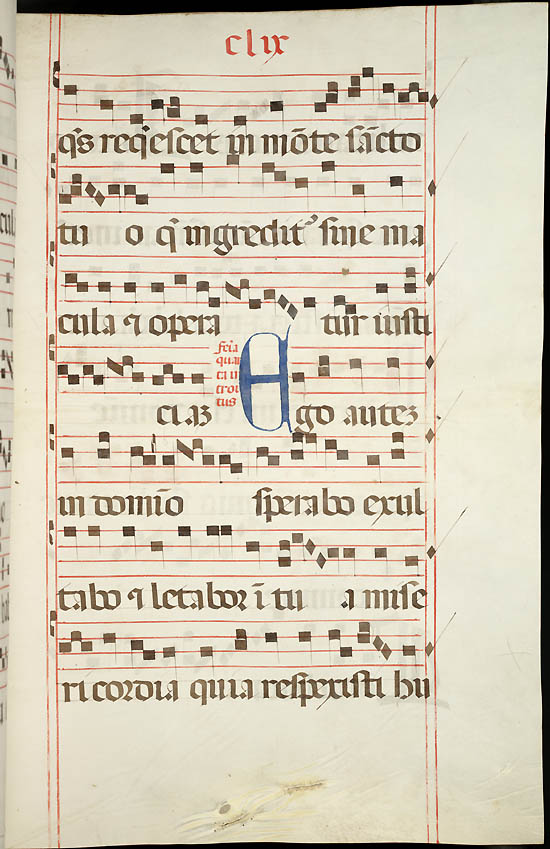 clix
q̃s reqͥescet in mōte sācto
tu o q̃ ingredit᷑ sine ma
cula ⁊ opera tur iusti
feria
quar
ta in
troi
tus
ciaꝫ Ego auteꝫ
in domīo sperabo exul
tabo ⁊ letabor ī tu a mise
ri cordia quia respexisti hu